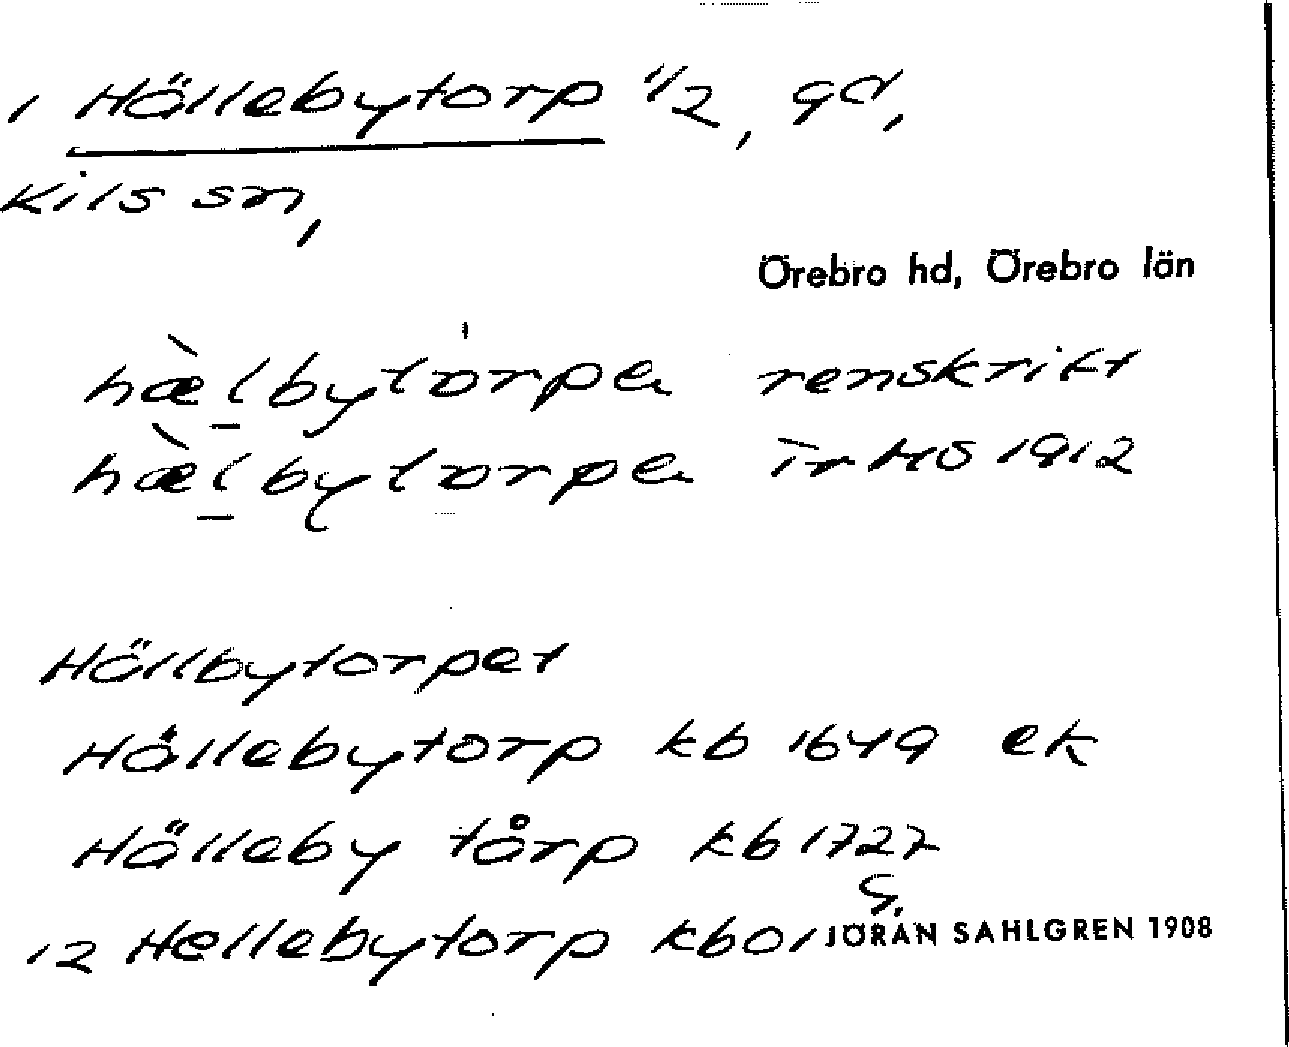 1 Hällebytorp 1/2, gd,
Kils sn,
Örebro hd, Örebro län
hæ̀lbytòrpe renskrift
hæ̀lbytorpe 1912
Hällbytorpet
Hällebytorp kb 1649 ek
Hälleby tårp kb 1727
12 Hellebytorp kb 01
JÖRAN SAHLGREN 1908